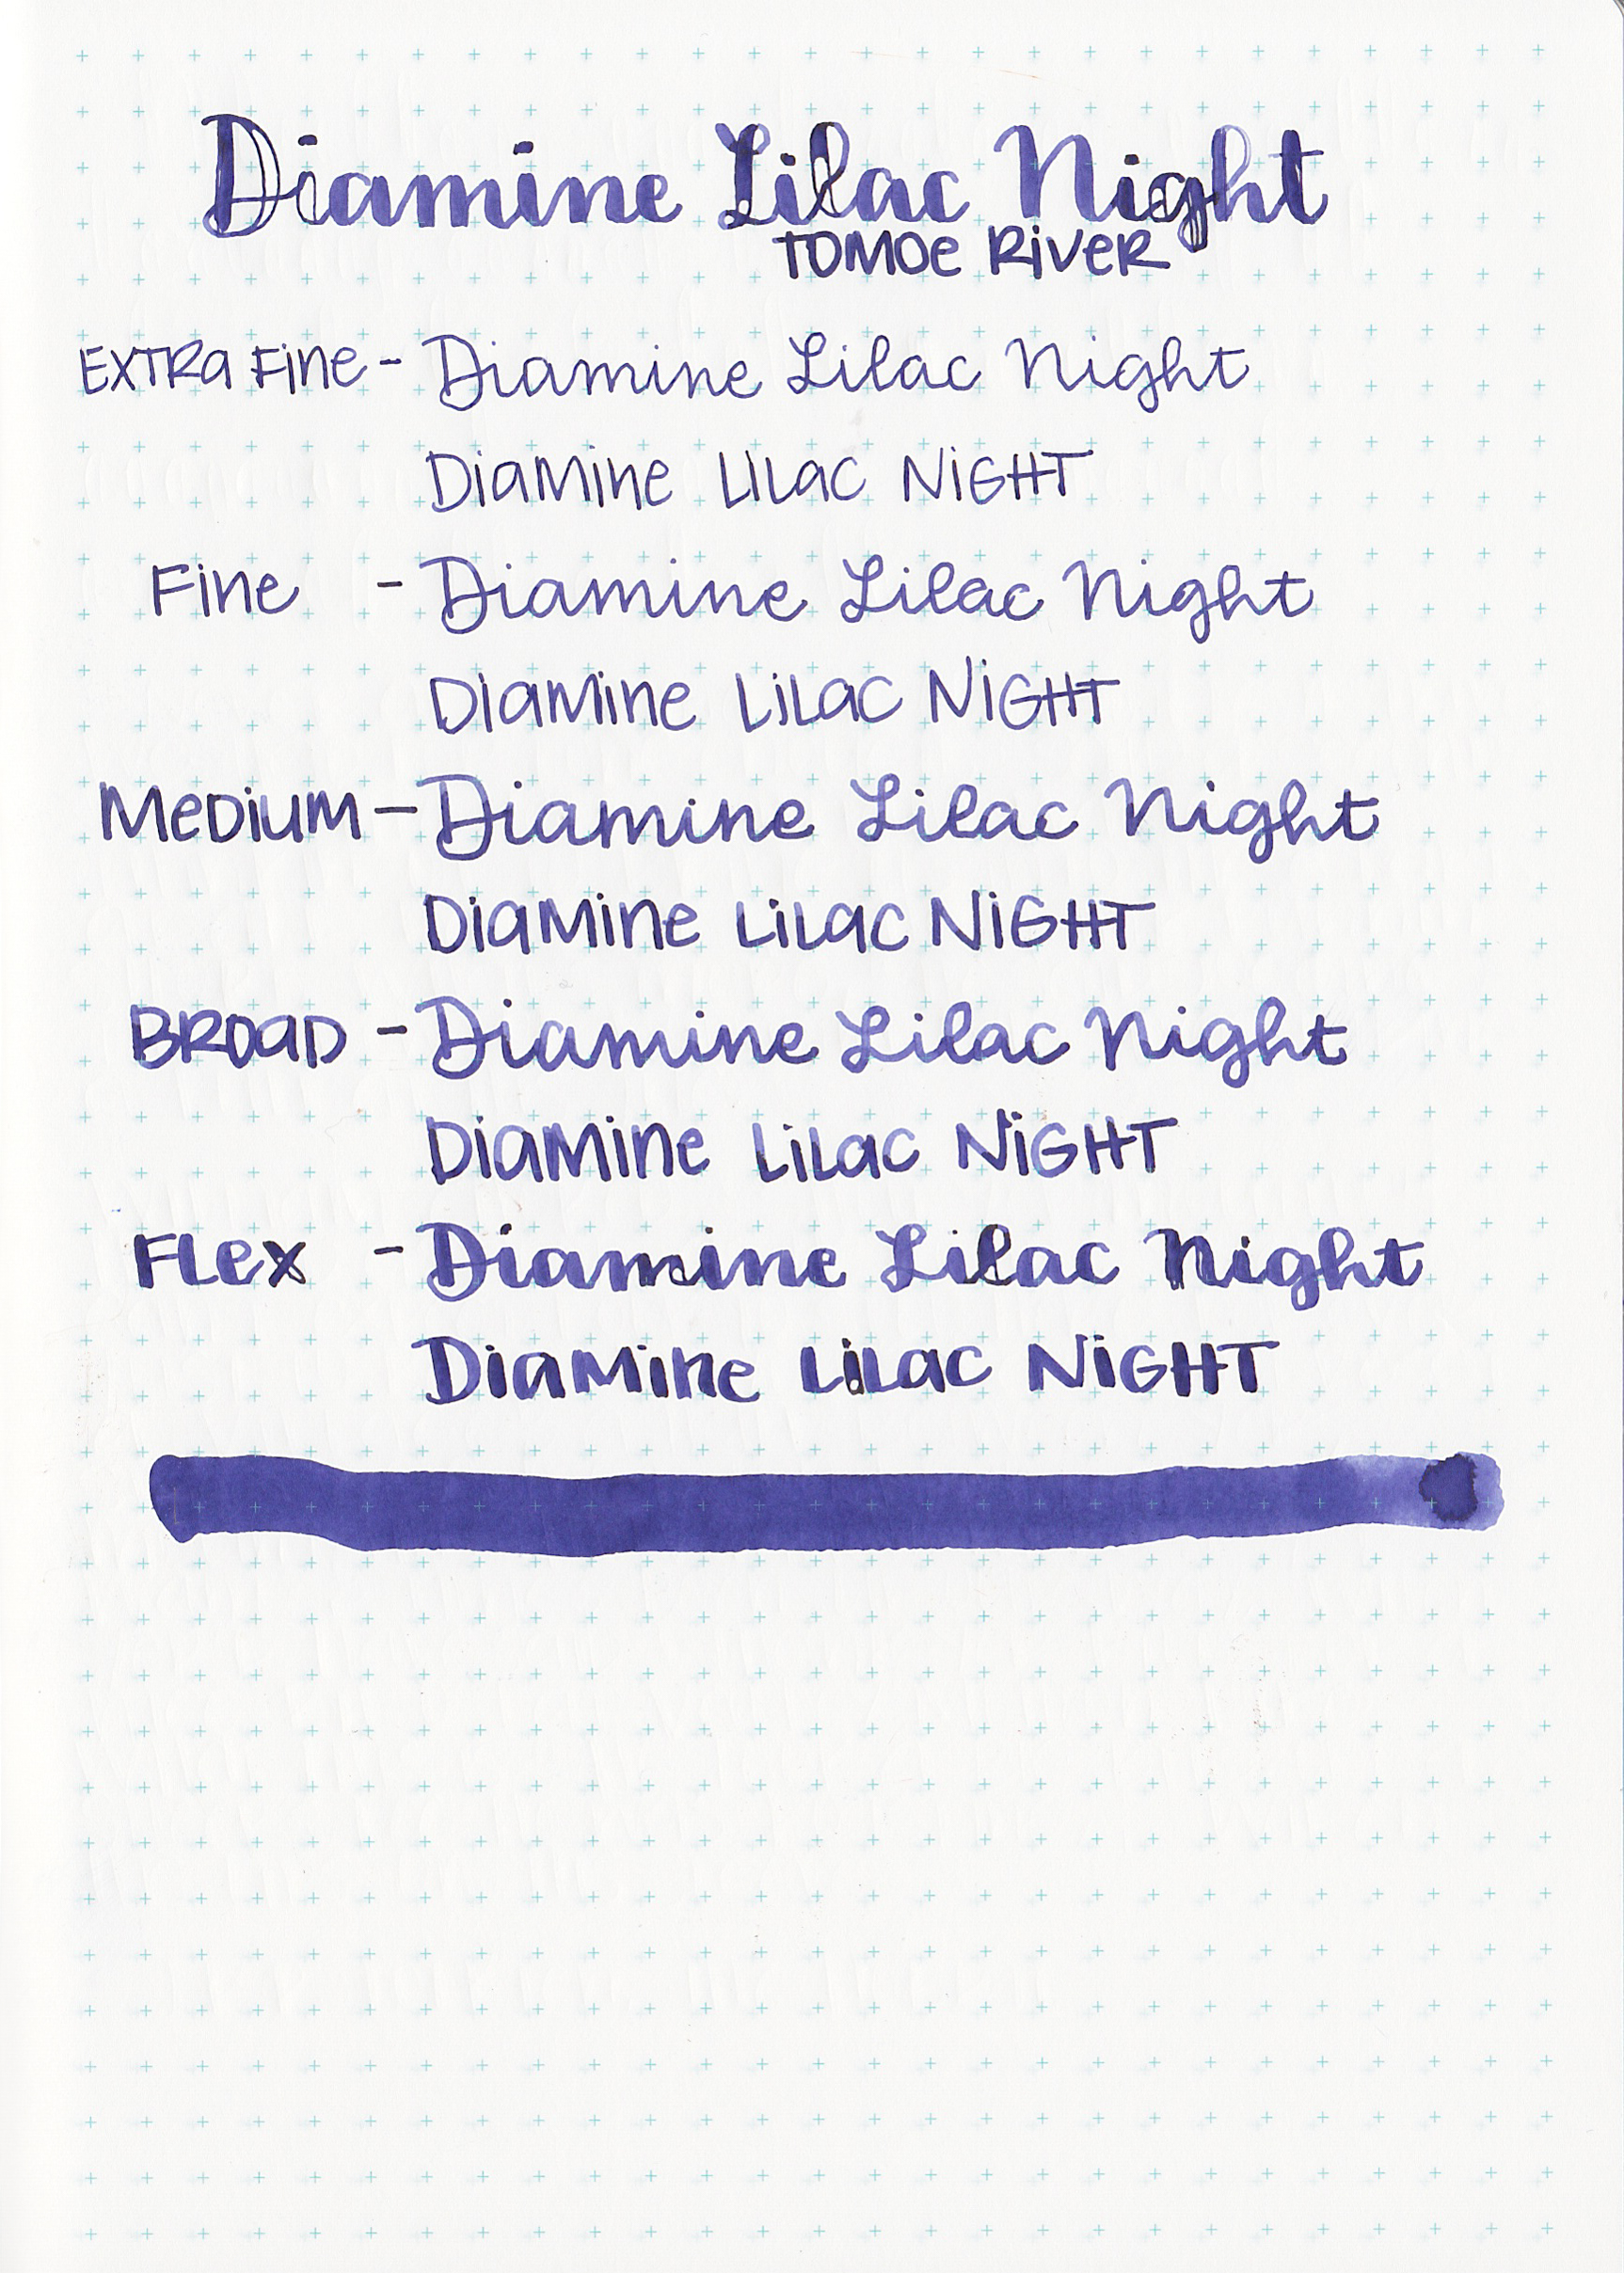 Diamine Lilac Night
TOMOE RiVER
EXTRa Fine - Diamine Lilac Night
DiaMine LiLac NiGHT
Fine - Diamine Lilac Night
DiaMine LiLac NiGHT
MeDiuM - Diamine Lilac Night
DiaMine LiLac NiGHT
BROaD - Diamine Lilac Night
DiaMine LiLac NiGHT
FLex - Diamine Lilac Night
DiaMine LiLac NiGHT